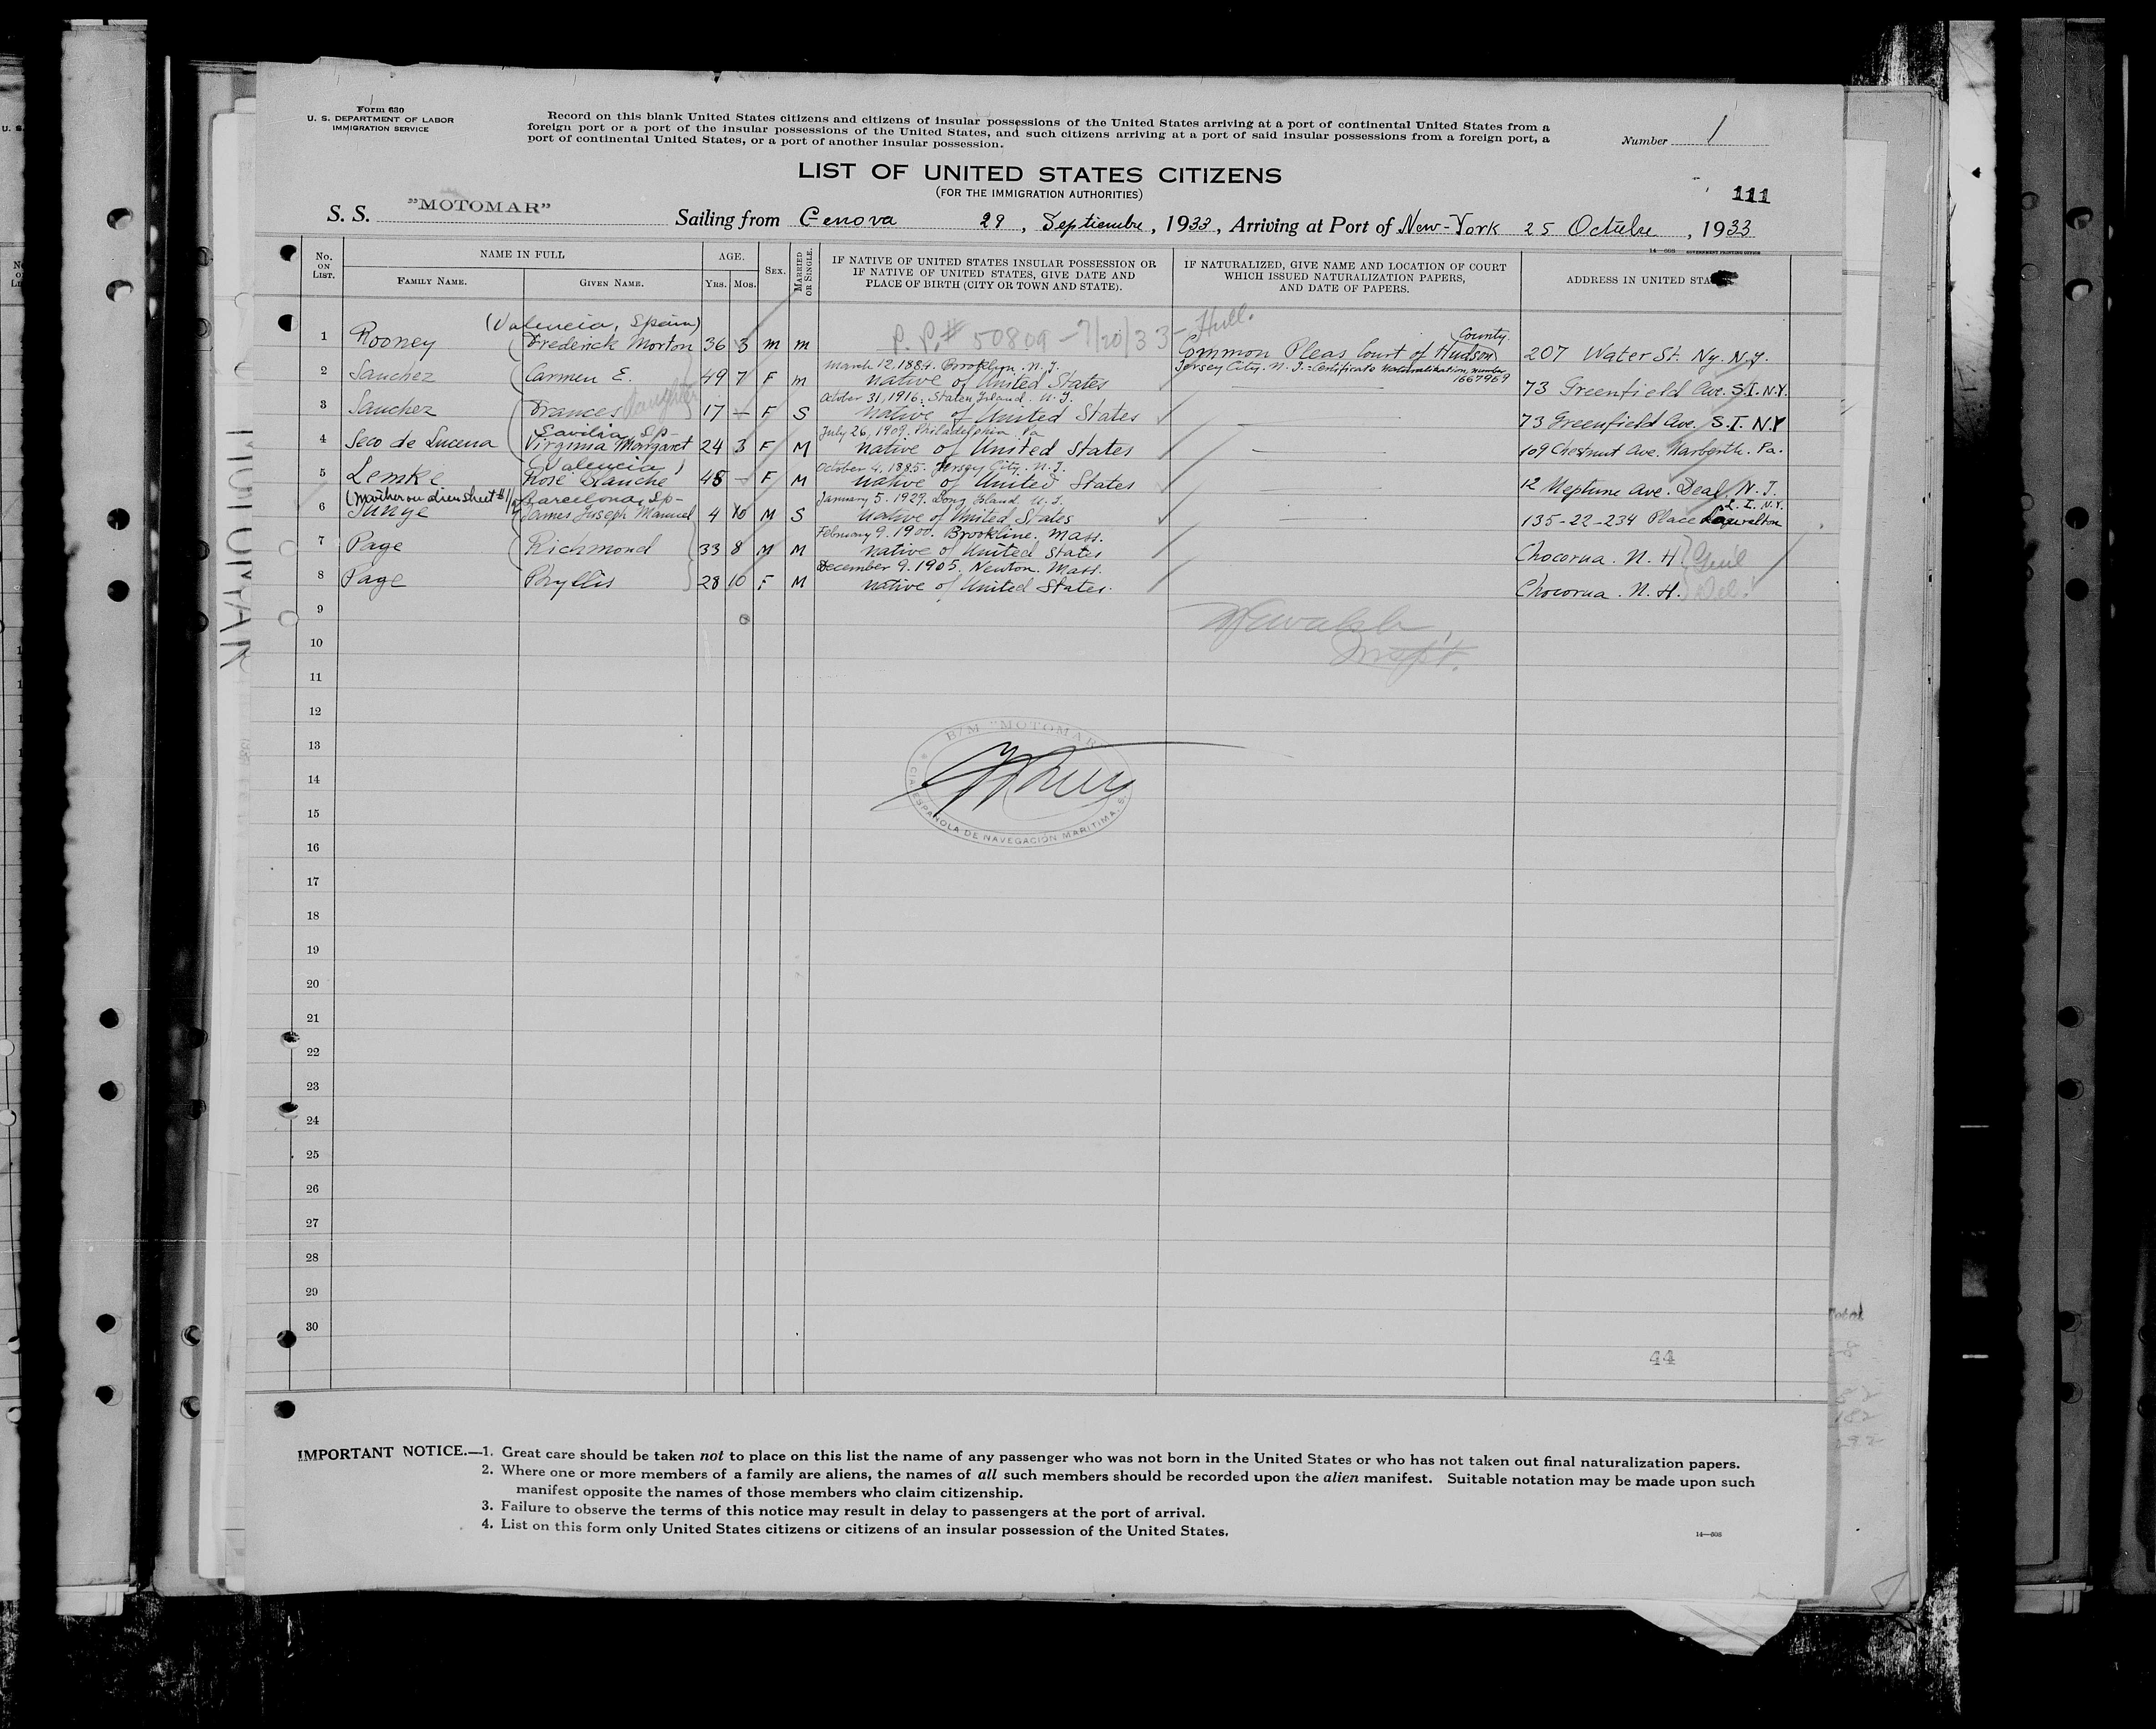 Form 630
U. S. DEPARTMENT OF LABOR
IMMIGRATION SERVICE
Record on this blank United States citizens and citizens of insular possessions of the United States arriving at a port of continental United States from a
foreign port or a port of the insular possessions of the United States, and such citizens arriving at a port of said insular possessions from a foreign port, a
port of continental United States, or a port of another insular possession.
Number 1
LIST OF UNITED STATES CITIZENS
(FOR THE IMMIGRATION AUTHORITIES)
111
S. S. "MOTOMAR" Sailing from Genova 29, Septiembre, 1933, Arriving at Port of New-York 25 Octubre, 1933
14—608 GOVERNMENT PRINTING OFFICE
No. ON LIST. NAME IN FULL AGE. SEX. MARRIED OR SINGLE. IF NATIVE OF UNITED STATES INSULAR POSSESSION OR IF NATIVE OF UNITED STATES, GIVE DATE AND PLACE OF BIRTH (CITY OR TOWN AND STATE). IF NATURALIZED, GIVE NAME AND LOCATION OF COURT WHICH ISSUED NATURALIZATION PAPERS, AND DATE OF PAPERS. ADDRESS IN UNITED STA
FAMILY NAME. GIVEN NAME. YRS. MOS.
(Valencia, Spain) P. P. # 50809 - 7/20/33 - Hull. County
1 Rooney Frederick Morton 36 3 m m Common Pleas Court of Hudson 207 Water St. Ny. N.y.
March 12, 1884. Brooklyn. N.Y. Jersey City. N. J. = Certificate Naturalization number 1667969
2 Sanchez Carmen E. 49 7 F m native of United States 73 Greenfield Ave. S.I. N.Y.
October 31, 1916. Staten Island. N.Y.
3 Sanchez Frances daughter 17 — F S native of United States 73 Greenfield Ave. S.I. N.Y
Savilia, Sp- July 26, 1909. Philadelphia Pa
4 Seco de Lucena Virginia Margaret 24 3 F M native of United States 109 Chestnut Ave. Narberth. Pa.
(Valencia) October 4. 1885. Jersey City. N. J.
5 Lemke Rose Blanche 48 — F M native of United States 12 Neptune Ave. Deal, N. J.
(Mother on alien sheet #1/ Barcelona, Sp- January 5. 1929. Long Island. N.Y. L. I. N.Y.
6 Junye James Joseph Manuel 4 10 M S native of United States 135-22-234 Place Laurelton
February 9. 1900. Brookline. Mass.
7 Page Richmond 33 8 M M native of United States Chocorua. N. H
December 9. 1905. Newton. Mass.
8 Page Phyllis 28 10 F M native of United States. Chocorua. N. H.
9
10 Insp't.
11
12
13 B/M "MOTOMAR"
14
15 CIA ESPAÑOLA DE NAVEGACIÓN MARITIMA, S
16
17
18
19
20
21
22
23
24
25
26
27
28
29
30
44
IMPORTANT NOTICE.—1. Great care should be taken not to place on this list the name of any passenger who was not born in the United States or who has not taken out final naturalization papers.
2. Where one or more members of a family are aliens, the names of all such members should be recorded upon the alien manifest. Suitable notation may be made upon such
manifest opposite the names of those members who claim citizenship.
3. Failure to observe the terms of this notice may result in delay to passengers at the port of arrival.
4. List on this form only United States citizens or citizens of an insular possession of the United States.
14—608
MOTOMAR
Total